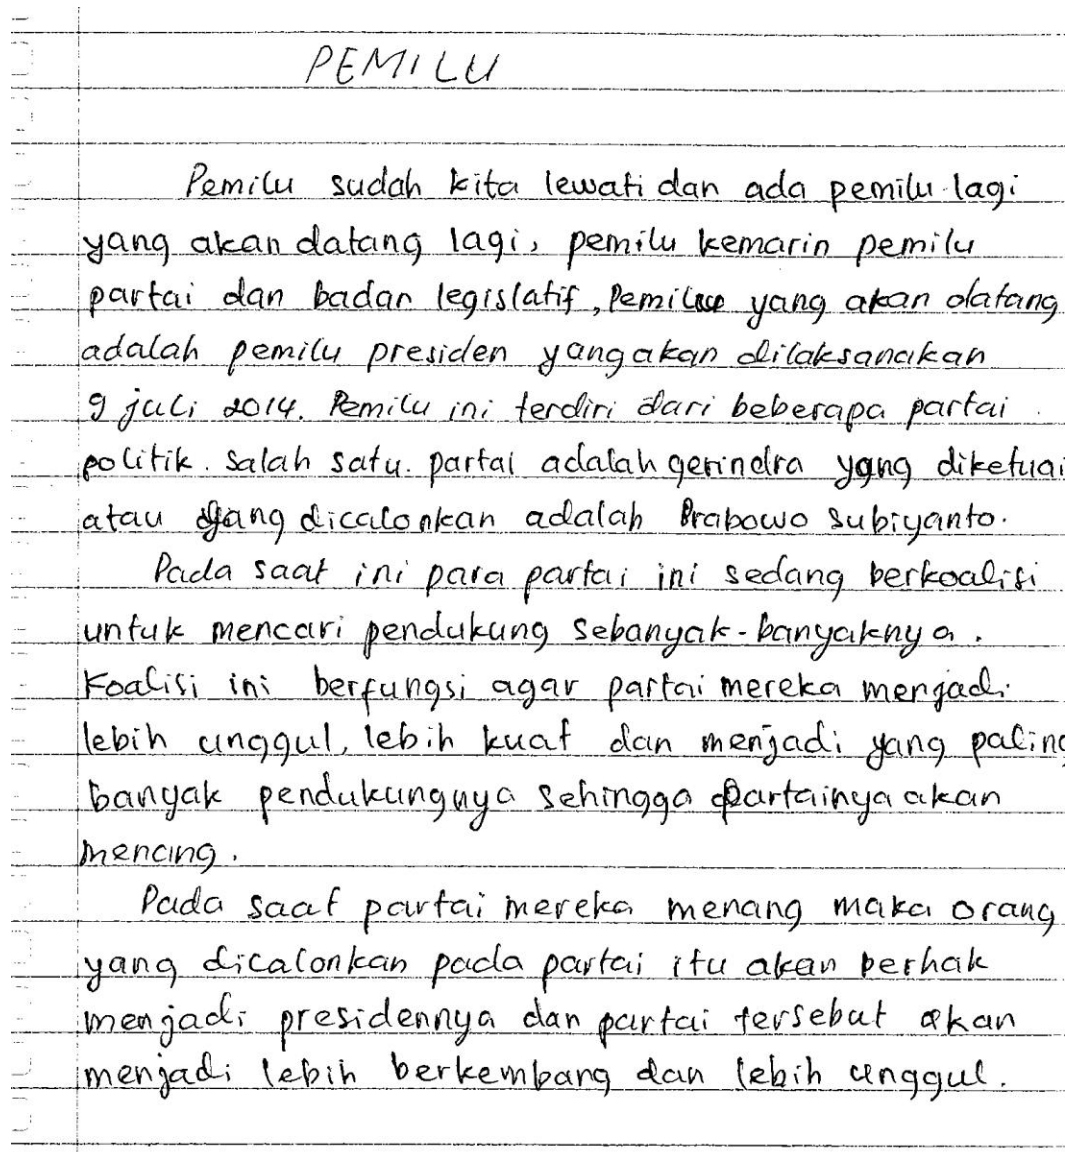 PEMILU
Pemilu sudah kita lewati dan ada pemilu lagi
yang akan datang lagi, pemilu kemarin pemilu
partai dan badan legislatif, Pemilu yang akan datang
adalah pemilu presiden yang akan dilaksanakan
9 juli 2014. Pemilu ini terdiri dari beberapa partai
politik. Salah satu. partai adalah gerindra yang diketuai
atau yang dicalonkan adalah Prabowo Subiyanto.
Pada saat ini para partai ini sedang berkoalisi
untuk mencari pendukung sebanyak-banyaknya.
Koalisi ini berfungsi agar partai mereka menjadi
lebih unggul, lebih kuat dan menjadi yang paling
banyak pendukungnya sehingga partainya akan
menang.
Pada saat partai mereka menang maka orang
yang dicalonkan pada partai itu akan berhak
menjadi presidennya dan partai tersebut akan
menjadi lebih berkembang dan lebih unggul.